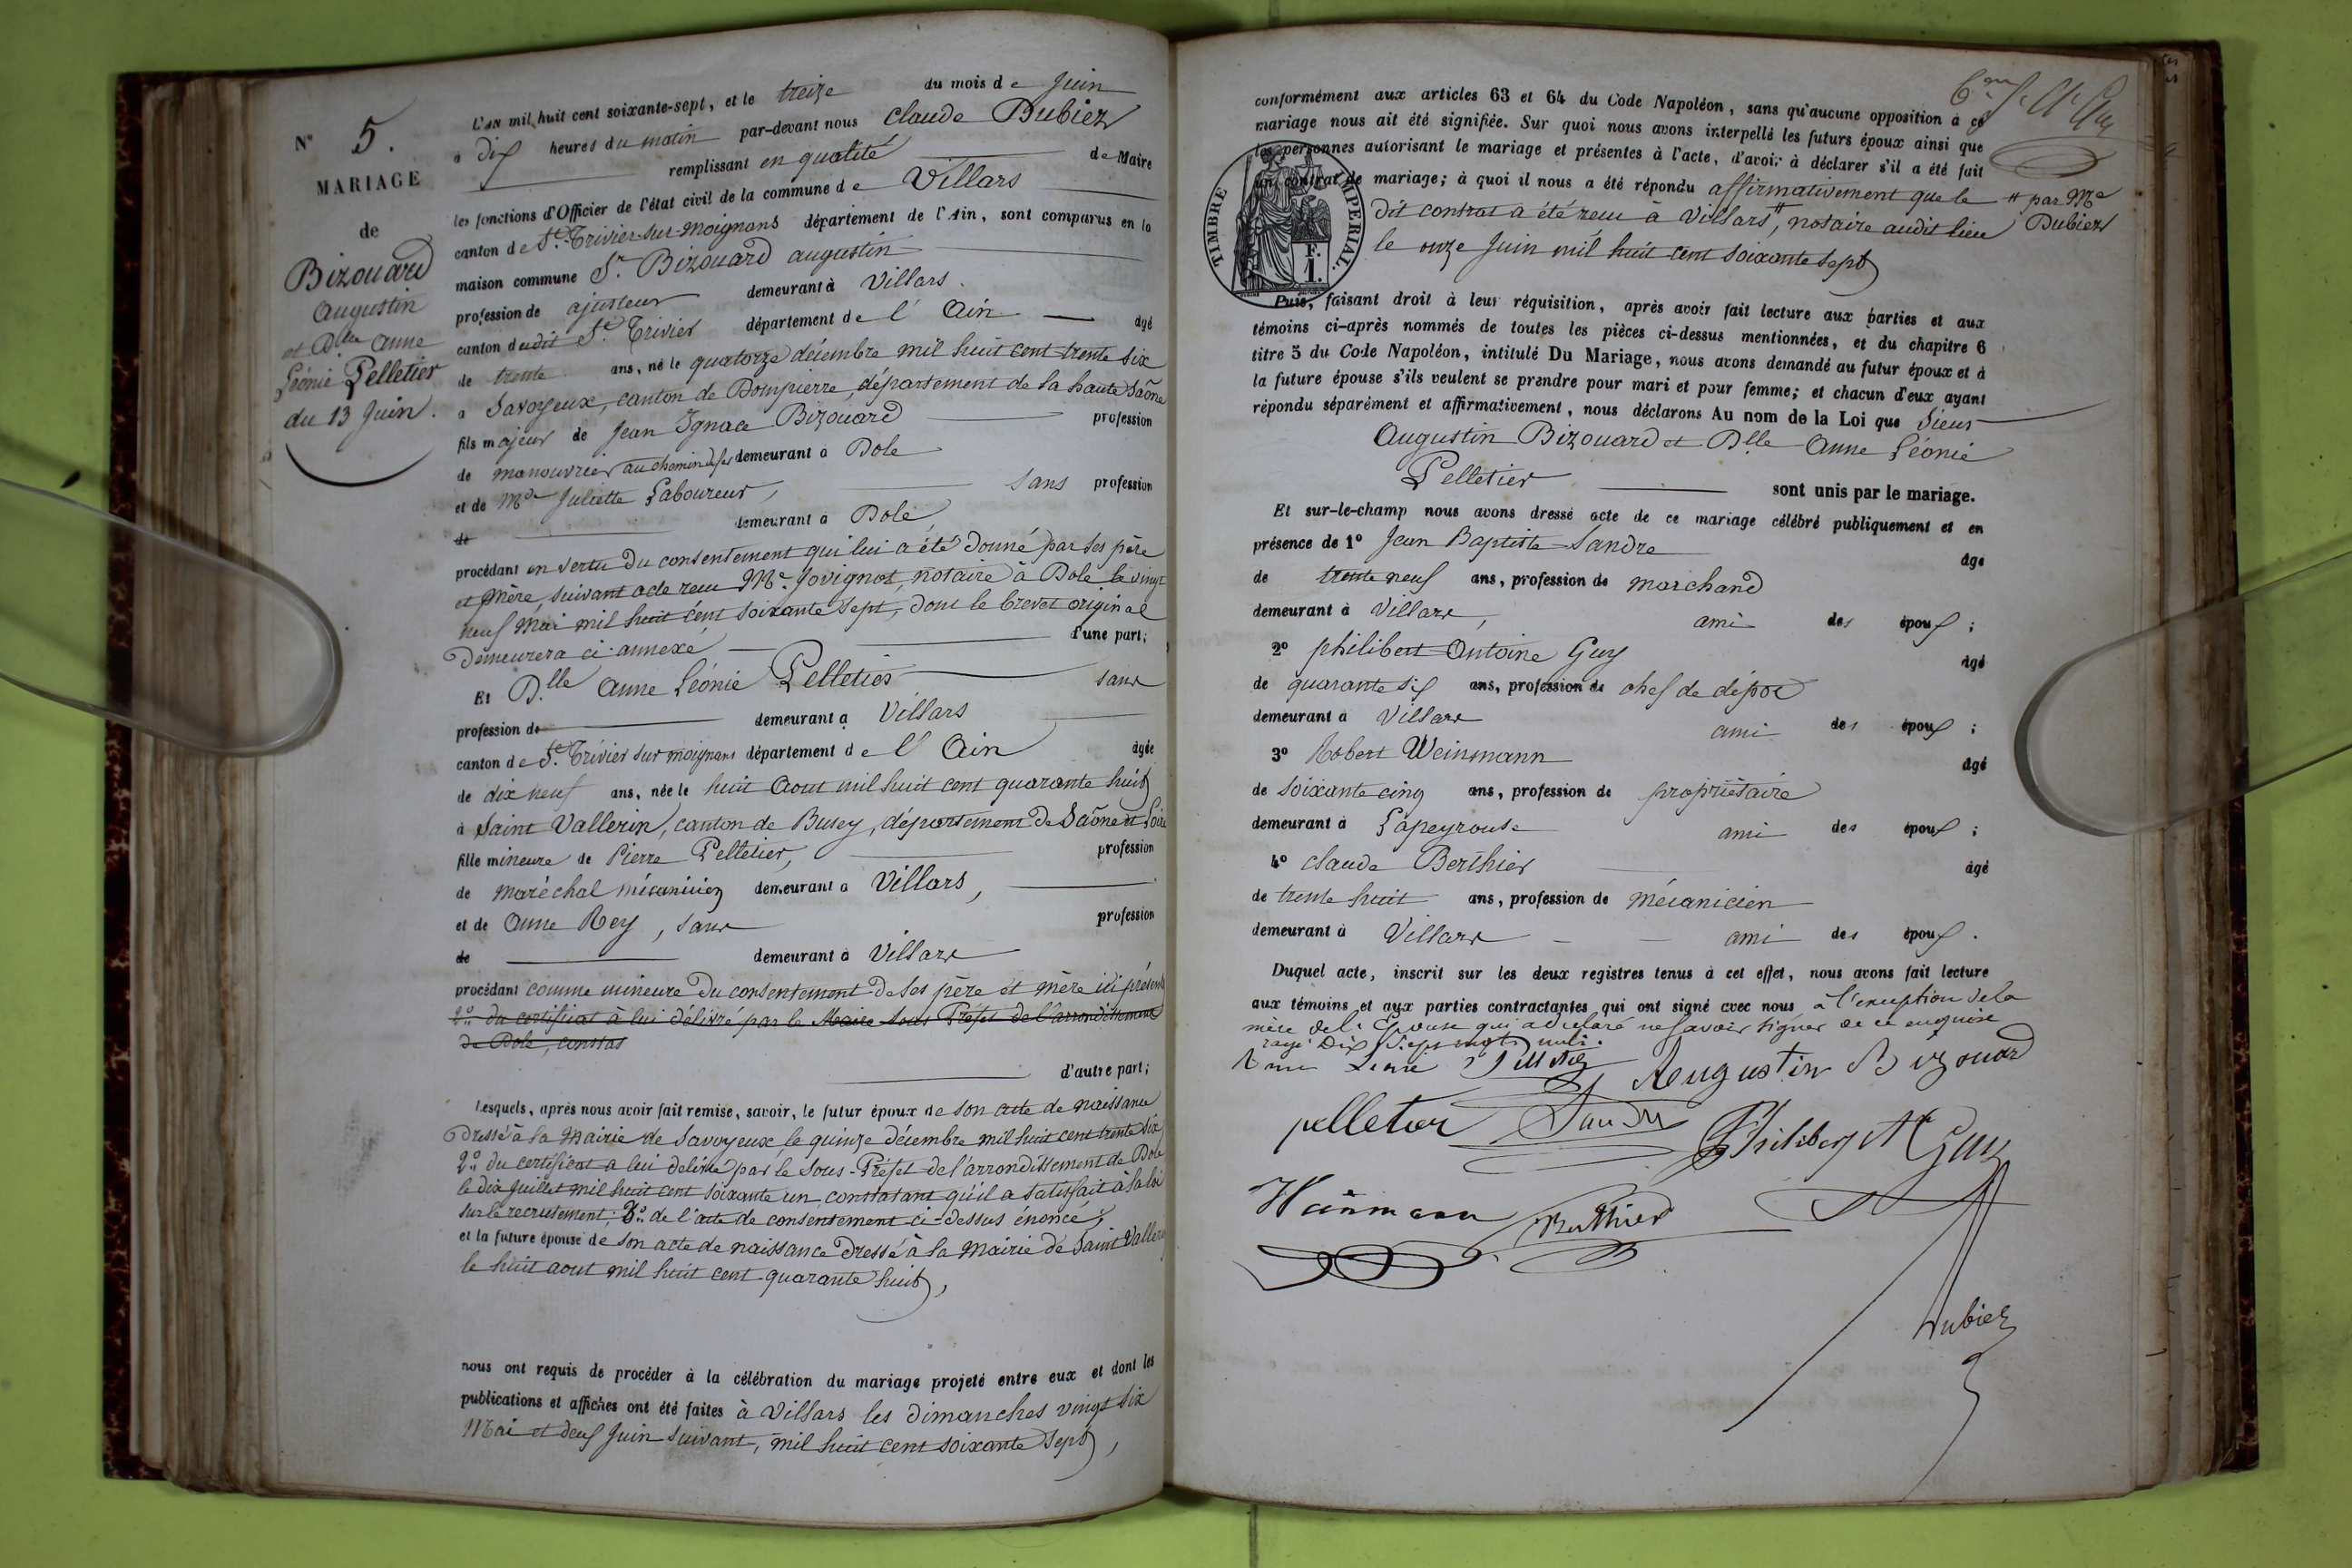 N° 5.
MARIAGE
de
Bizouard
Augustin
et Dlle Anne
Léonie Pelletier
du 13 Juin.
L'AN mil huit cent soixante-sept, et le treize du mois de Juin
à dix heures du matin par-devant nous Claude Dubiez
remplissant en qualité de Maire
les fonctions d'Officier de l'état civil de la commune de Villars
canton de St. Trivier-sur-Moignans département de l'Ain, sont comparus en la
maison commune Sr. Bizouard Augustin
profession de ajusteur demeurant à Villars.
canton dudit St. Trivier département de l'Ain âgé
de trente ans, né le quatorze décembre mil huit cent trente six
à Savoyeux, canton de Dompierre, département de la haute Saône
fils majeur de Jean Ignace Bizouard profession
de manouvrier au chemin de fer demeurant à Dole
et de Me Juliette Laboureur, sans profession
de demeurant à Dole
procédant en vertu du consentement qui lui a été donné par ses père
et mère, suivant acte reçu Me. Jovignot, notaire à Dole le vingt
neuf Mai mil huit cent soixante sept, dont le brevet original
demeurera ci-annexé d'une part;
Et Dlle Anne Léonie Pelletier sans
profession de demeurant à Villars
canton de St. Trivier sur moignans département de l'Ain âgée
de dix neuf ans, née le huit Aout mil huit cent quarante huit
à Saint Vallerin, canton de Buscy, département de Saône et Loire
fille mineure de Pierre Pelletier, profession
de maréchal mécanicien demeurant à Villars,
et de Anne Rey, sans profession
de demeurant à Villars
procédant comme mineure du consentement de ses père et mère ici présents
2° du certificat à lui délivré par le Maire Sous Préfet de l'arrondissement
de Dole, constat
d'autre part;
Lesquels, après nous avoir fait remise, savoir, le futur époux de son acte de naissance
dressé à la Mairie de Savoyeux, le quinze décembre mil huit cent trente six
2° du certificat a lui délivré par le Sous-Préfet de l'arrondissement de Dole
le dix Juillet mil huit cent soixante un constatant qu'il a satisfait à la loi
sur le recrutement; 3° de l'acte de consentement ci-dessus énoncé,
et la future épouse de son acte de naissance dressé à la Mairie de Saint Vallerin
le huit aout mil huit cent quarante huit,
nous ont requis de procéder à la célébration du mariage projeté entre eux et dont les
publications et affiches ont été faites à Villars les dimanches vingt six
Mai et deux Juin suivant, mil huit cent soixante sept,
conformément aux articles 63 et 64 du Code Napoléon, sans qu'aucune opposition à ce
mariage nous ait été signifiée. Sur quoi nous avons interpellé les futurs époux ainsi que
les personnes autorisant le mariage et présentes à l'acte, d'avoir à déclarer s'il a été fait
un contrat de mariage; à quoi il nous a été répondu affirmativement que le
dit contrat a été reçu à Villars #, notaire audit lieu
# par Me
Dubiez
le onze Juin mil huit cent soixante sept
TIMBRE IMPERIAL.
F.
1.
Puis, faisant droit à leur réquisition, après avoir fait lecture aux parties et aux
témoins ci-après nommés de toutes les pièces ci-dessus mentionnées, et du chapitre 6
titre 5 du Code Napoléon, intitulé Du Mariage, nous avons demandé au futur époux et à
la future épouse s'ils veulent se prendre pour mari et pour femme; et chacun d'eux ayant
répondu séparément et affirmativement, nous déclarons Au nom de la Loi que Sieur
Augustin Bizouard et Dlle Anne Léonie
Pelletier sont unis par le mariage.
Et sur-le-champ nous avons dressé acte de ce mariage célébré publiquement et en
présence de 1° Jean Baptiste Sandre âgé
de trente neuf ans, profession de marchand
demeurant à Villars, ami des époux;
2° Philibert Antoine Guy âgé
de quarante six ans, profession de chef de dépot
demeurant à Villars ami des époux;
3° Robert Weinmann âgé
de soixante cinq ans, profession de propriétaire
demeurant à Lapeyrouse ami des époux;
4° Claude Berthier âgé
de trente huit ans, profession de mécanicien
demeurant à Villars ami des époux.
Duquel acte, inscrit sur les deux registres tenus à cet effet, nous avons fait lecture
aux témoins et aux parties contractantes qui ont signé avec nous à l'exception de la
mère de l'Epouse qui a déclaré ne savoir signer de ce enquise
rayé Dix Sept mots nuls.
Anne Léonie Pelletier Augustin Bizouard
pelletier Sandre Philibert A Guy
Weinmann Berthier
Dubiez